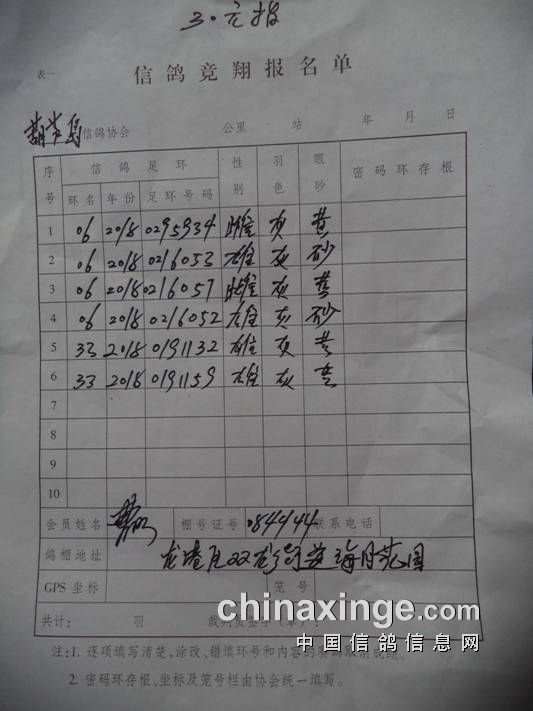 3.元报
表一
信鸽竞翔报名单
葫芦岛信鸽协会 公里 站 年 月 日
序号 信鸽足环 性别 羽色 眼砂 密码环存根
环名 年份 足环号码
1 06 2018 0295934 雌 灰 黄
2 06 2018 0216053 雄 灰 砂
3 06 2018 0216057 雌 灰 黄
4 06 2018 0216052 雄 灰 砂
5 33 2018 0191132 雄 灰 黄
6 33 2018 0191159 雄 灰 黄
7
8
9
10
会员姓名 棚号证号 084144 联系电话
鸽棚地址 龙港区双龙街
GPS坐标 笼号
共计: 羽 裁判员签字(章):
chinaxinge.com
中国信鸽信息网
注:1. 逐项填写清楚,涂改、错填环号和内容的赛鸽取消成绩。
2. 密码环存根、坐标及笼号栏由协会统一填写。